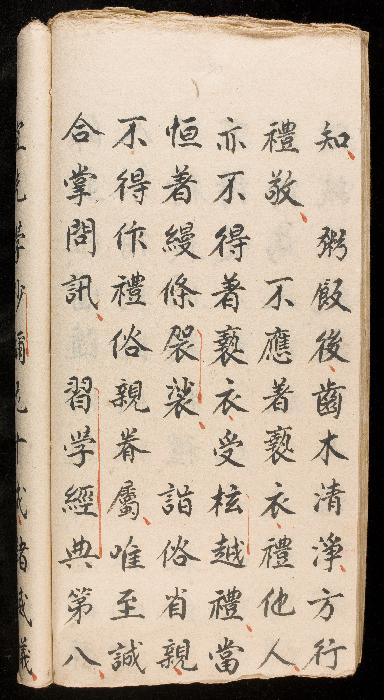 知　粥飯後齒木清淨方行
禮敬　不應著褻衣禮他人
亦不得著褻衣受檀越禮當
恒著縵條袈裟　詣俗省親
不得作禮俗親眷屬唯至誠
合掌問訊　習學經典第八